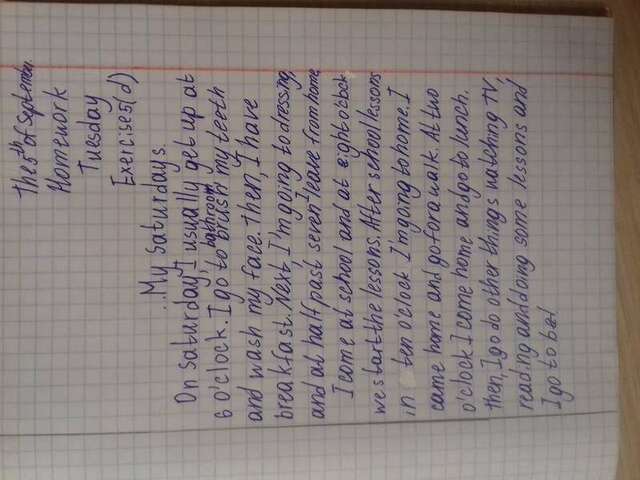 The 5th of September.
Homework
Tuesday
Exercise 5(d)
...My saturdays.
On saturday, I usually get up at
6 o'clock. I go to bathroom brush my teeth
and wash my face. then, I have
breakfast. Next, I'm going to dressing,
and at half past seven leave from home
I come at school and at eight o'clock
we start the lessons. After school lessons
in ten o'clock I'm gong to home. I
came home and go for a walk. At two
o'clock I came home and go to lunch.
then, I go do other things watching TV,
reading and dong some lessons and
I go to bed.